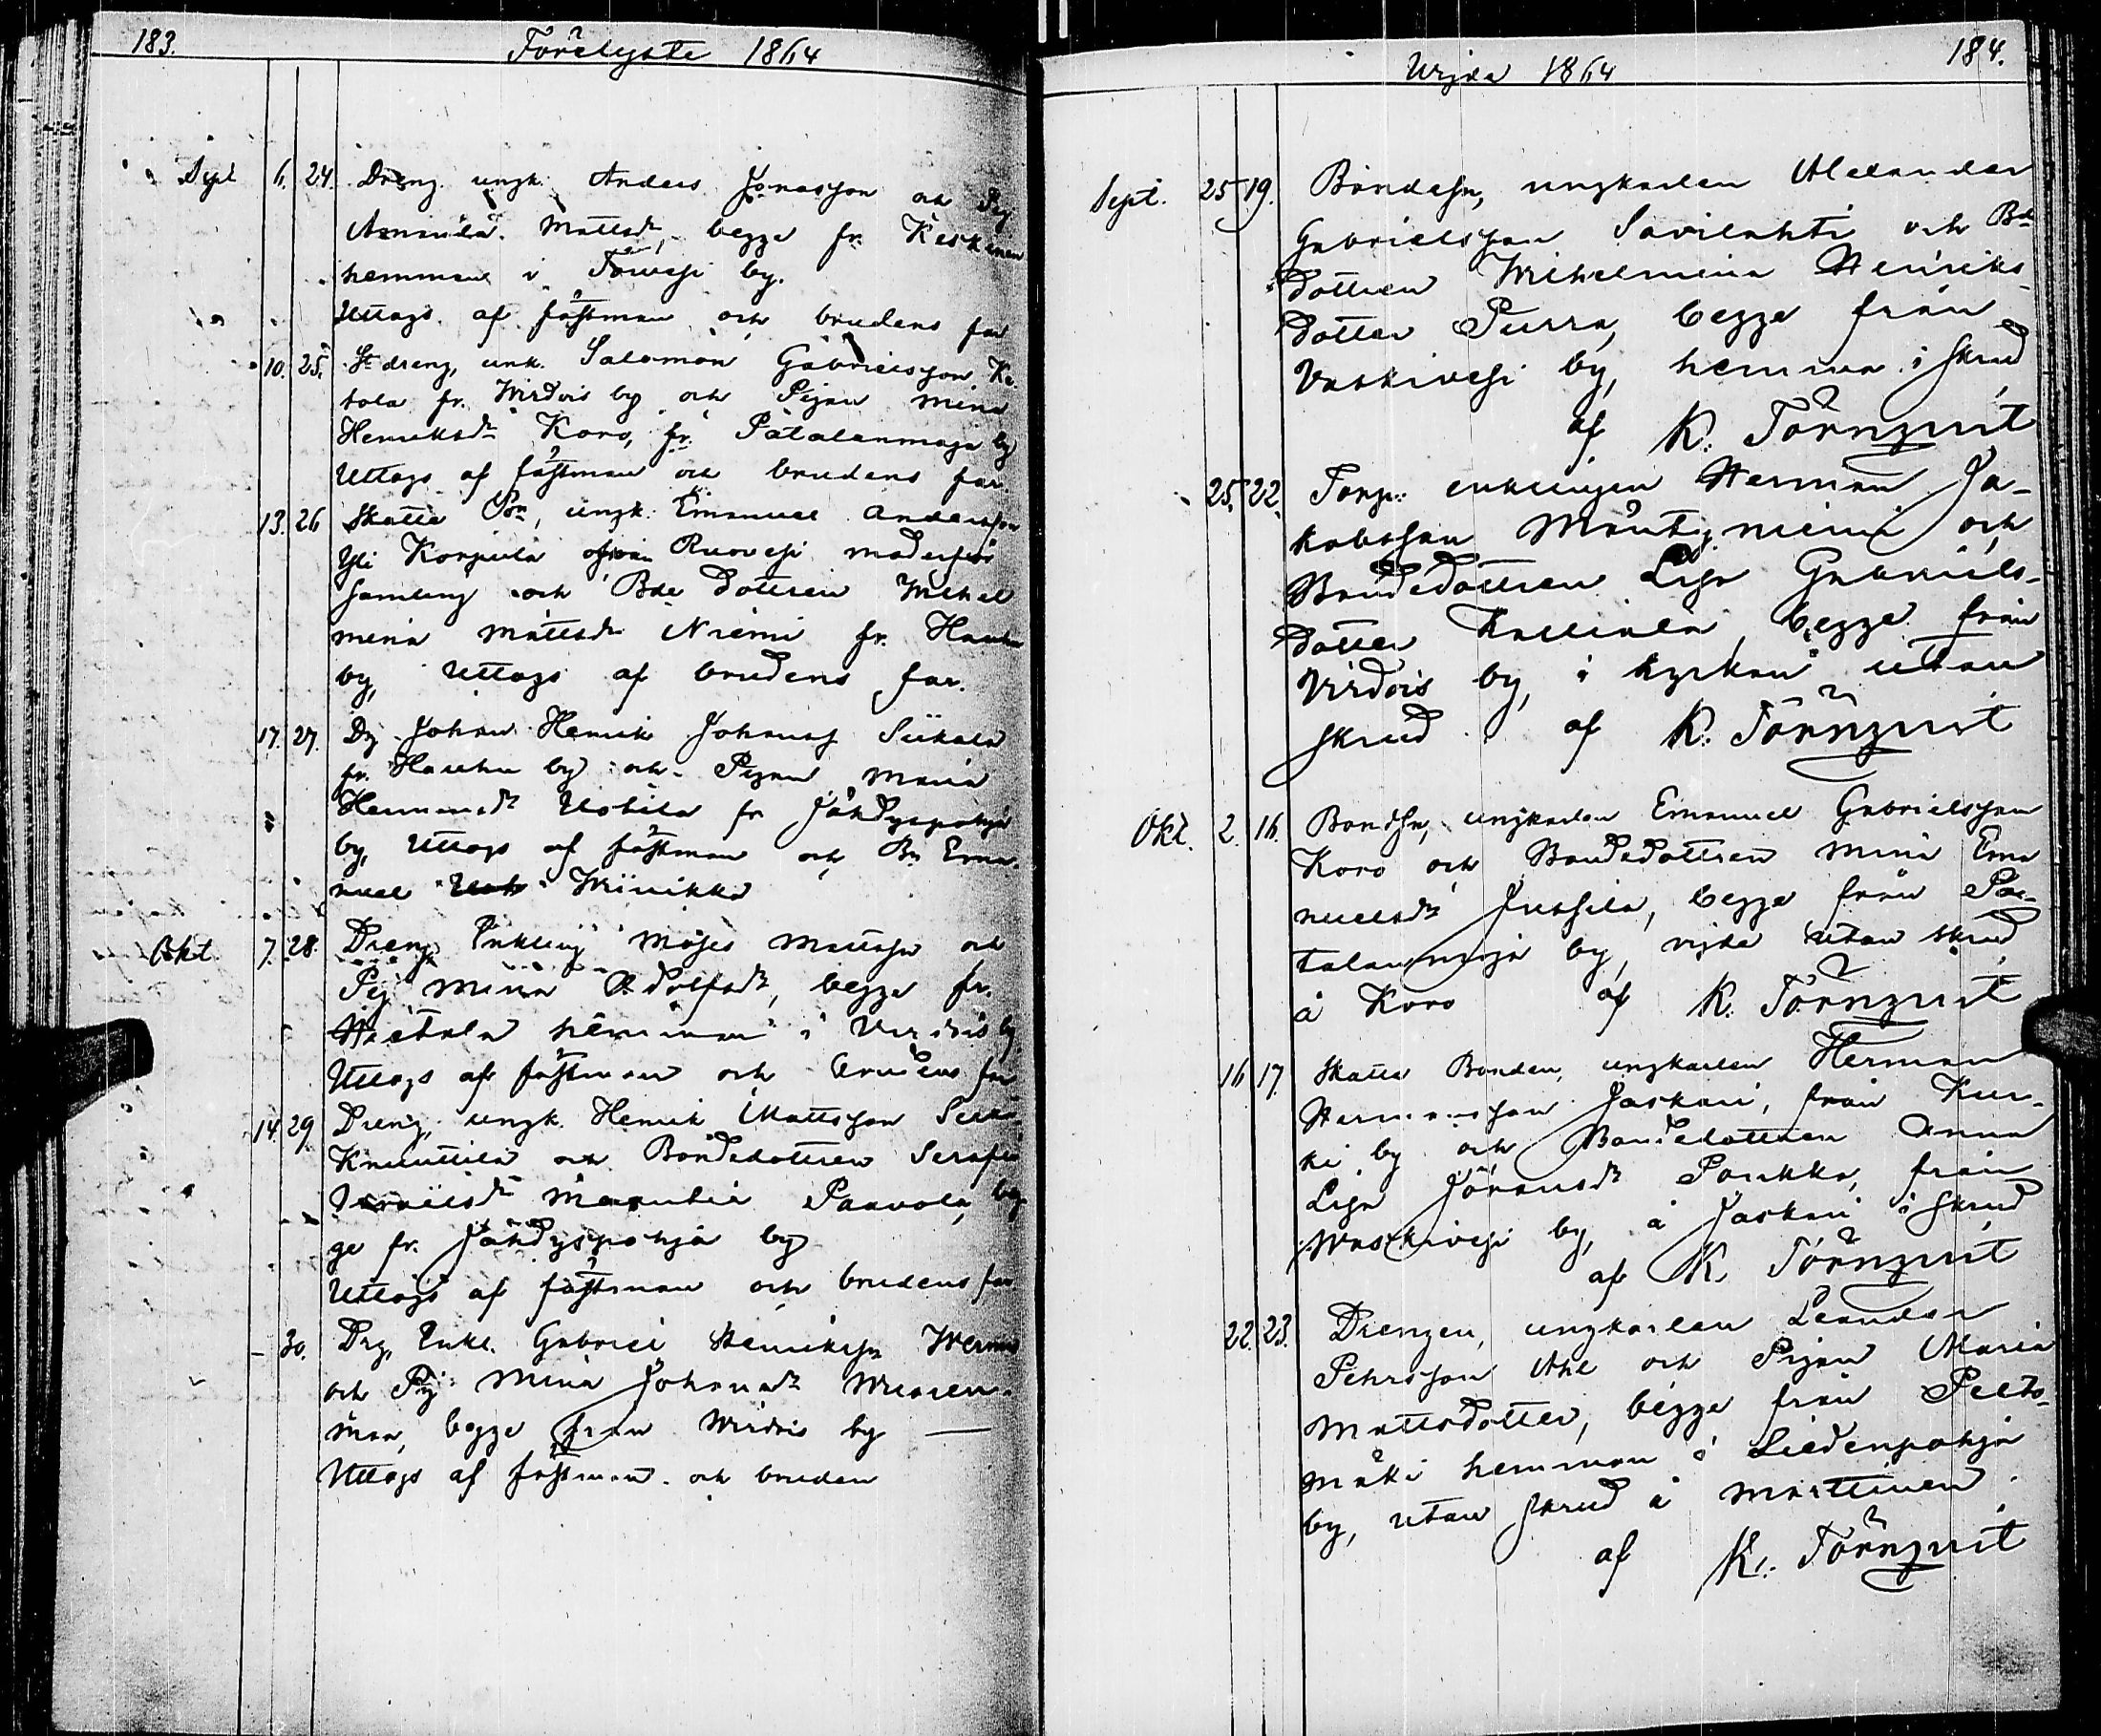 183.
Förelyste 1864
Sept 6. 24. Dreng. ungk. Anders Jonasson och Pig
Amanda Mattsdr begge fr. Keskinen
hemman i Toivesi by.
Uttogs af fästman och brudens far
10. 25. St dreng, unk. Salomon Gabrielsson Ke
tola fr. Wirdois by och Pigan Mina
Henriksdr Koro, fr. Patalanmaja by
Uttogs af fästman och brudens far.
13. 26 Skatte Bsn, ungk. Emanuel Andersson
Yli Korpula från Ruovesi moderförs
samling och Bde dottren Wilhel
mina Mattsdr Niemi fr. Hauhu
by, Uttogs af brudens far.
17. 27. Dg Johan Henrik Johanss Siikala
fr. Hauhu by och Pigan Maria
Hermansdr Uotila fr Jähdyspohja
by, Uttogs af fästman och Bn Ema
nuel Wiinikka
Okt 7. 28. Dreng Enkling Moses Mattssn och
Pig Mina Adolfsdr, begge fr.
Hietala hemman i Virdois by
Uttogs af fästman och brudens far
14. 29 Dreng, ungk. Henrik Mattsson
Knuuttila och Bondedottren Serafia
Israelsdr Paavola, beg
ge fr. Jähdyspohja by
Uttogs af fästman och brudens far
– 30. Drg, Enkl. Gabriel Henrikssn
och Pig Mina Johansdr Wuoren-
maa, begge från Wirdois by —
Uttogs af fästman och bruden
184.
Wigda 1864
Sept. 25 19. Bondesn, ungkarlen Alexander
Gabrielsson Savilahti och Bde
dottren Wilhelmina Henriks
dotter Purra, begge från
Vaskivesi by, hemma i skrud
af K. Törnqvist
25. 22. Torp. enklingen Herman Ja-
kobsson Mäntyniemi och
Bondedottren Lisa Gabriels-
dotter Kalliala, begge från
Virdois by, i kyrkan utan
skrud af K. Törnqvist
Okt. 2. 16. Bondesn, ungkarlen Emanuel Gabrielsson
Koro och Bondedottren Mina Ema
nuelsdr Jussila, begge från Pa-
talanmaja by, vigde utan skrud
å Koro af K. Törnqvist
16 17. Skatte Bonden, ungkarlen Herman
Hermansson Jaskari, från Kur-
ki by och Bondedottren Anna
Lisa Göransdr Poukka, från
Waskivesi by, å Jaskari i skrud
af K. Törnqvist
22. 23. Drengen, ungkarlen Leander
Pehrsson Ahl och Pigan Maria
Mattsdotter, begge från Pelto-
mäki hemman i Liedenpohja
by, utan skrud å Marttinen
af K. Törnqvist